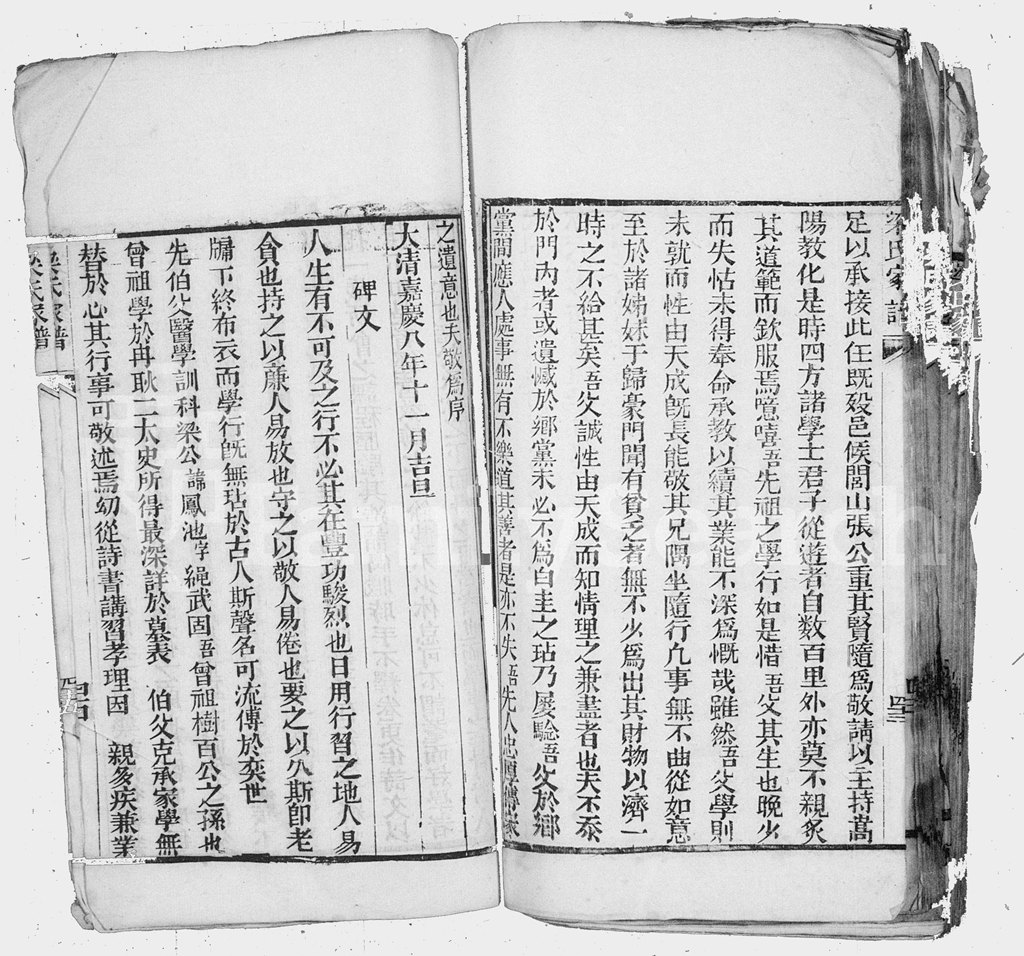 梁氏家譜
足以承接此任既殁邑候閻山張公重其賢隨為敬請以主持嵩
陽教化是時四方諸學士君子從遊者自数百里外亦莫不親炙
其道範而欽服焉噫嘻吾先祖之學行如是惜吾父其生也晚少
而失怙未得奉命承教以續其業能不深為慨哉雖然吾父學則
未就而性由天成旣長能敬其兄隅坐隨行凢事無不曲從如意
至於諸姊妹于歸豪門聞有貧乏者無不少為出其財物以濟一
時之不給甚矣吾父誠性由天成而知情理之兼盡者也夫不忝
於門内者或遺憾於鄉黨未必不為白圭之玷乃屡騐吾父於鄉
黨間應人處事無有不樂道其善者是亦不失吾先人忠厚傳家
之遺意也夫敬為序
大清嘉慶八年十一月吉旦
碑文
人生有不可及之行不必其在豐功駿烈也日用行習之地人易
貪也持之以廉人易放也守之以敬人易倦也要之以久斯卽老
牖下終布衣而學行旣無玷於古人斯聲名可流傳於奕世
先伯父醫學訓科梁公諱鳳池字繩武固吾曾祖樹百公之孫也
曾祖學於冉耿二太史所得最深詳於墓表　伯父克承家學無
替於心其行事可敬述焉幼從詩書講習孝理因　親多疾兼業
梁氏家譜